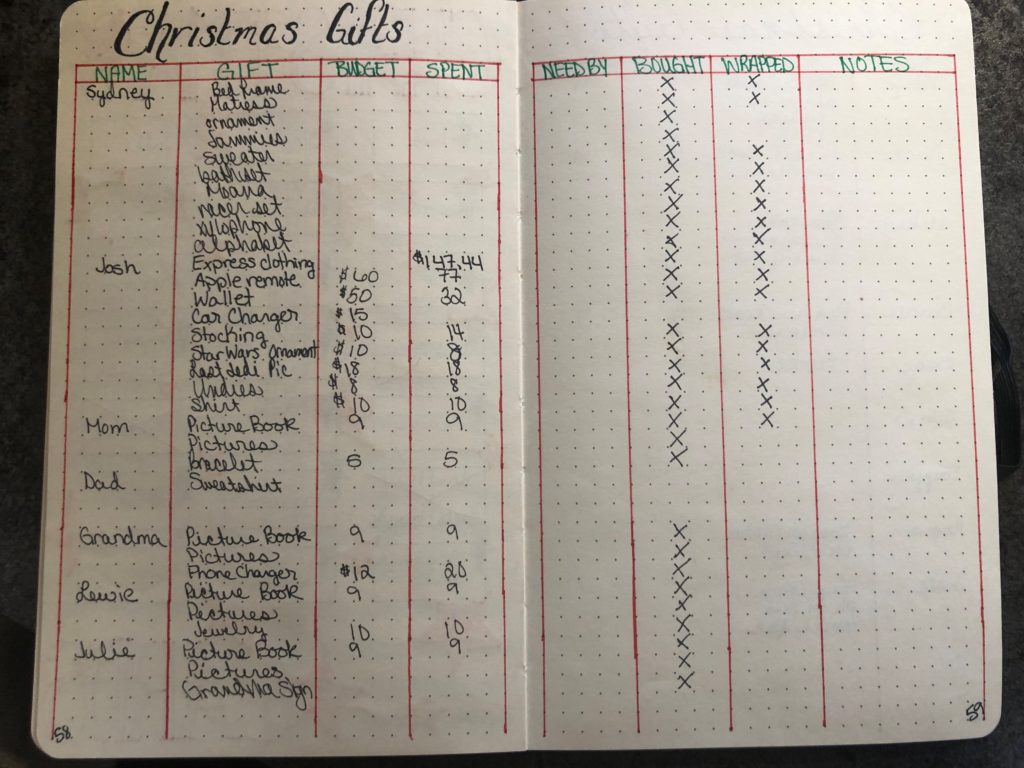 Christmas Gifts
NAME GIFT BUDGET SPENT NEED BY BOUGHT WRAPPED NOTES
Sydney Bed frame X X
Matress X X
ornament X
Jammies X
Sweater X X
bath set X X
Moana X X
set X X
xylophone X X
alphabet X X
Josh Express clothing $147.44 X X
Apple remote $60 77 X X
Wallet $50 32 X X
Car Charger $15
Stocking $10 14 X X
Star Wars Ornament $10 8 X X
Last Jedi Pic $18 18 X X
Undies $8 8 X X
Shirt $10 10 X X
Mom Picture Book 9 9 X X
Pictures X
bracelet 5 5 X
Dad Sweatshirt
Grandma Picture Book 9 9 X
Pictures X
Phone Charger $12 20 X
Lewie Picture Book 9 9 X
Pictures X
Jewelry 10 10 X
Julie Picture Book 9 9 X
Pictures X
Sign X
58 59